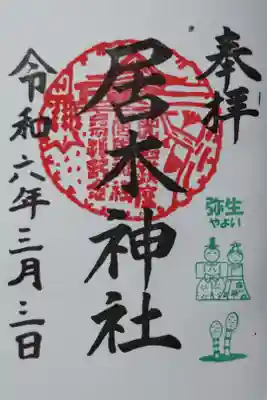 奉拝
居木神社
令和六年三月三日
弥生
やよい